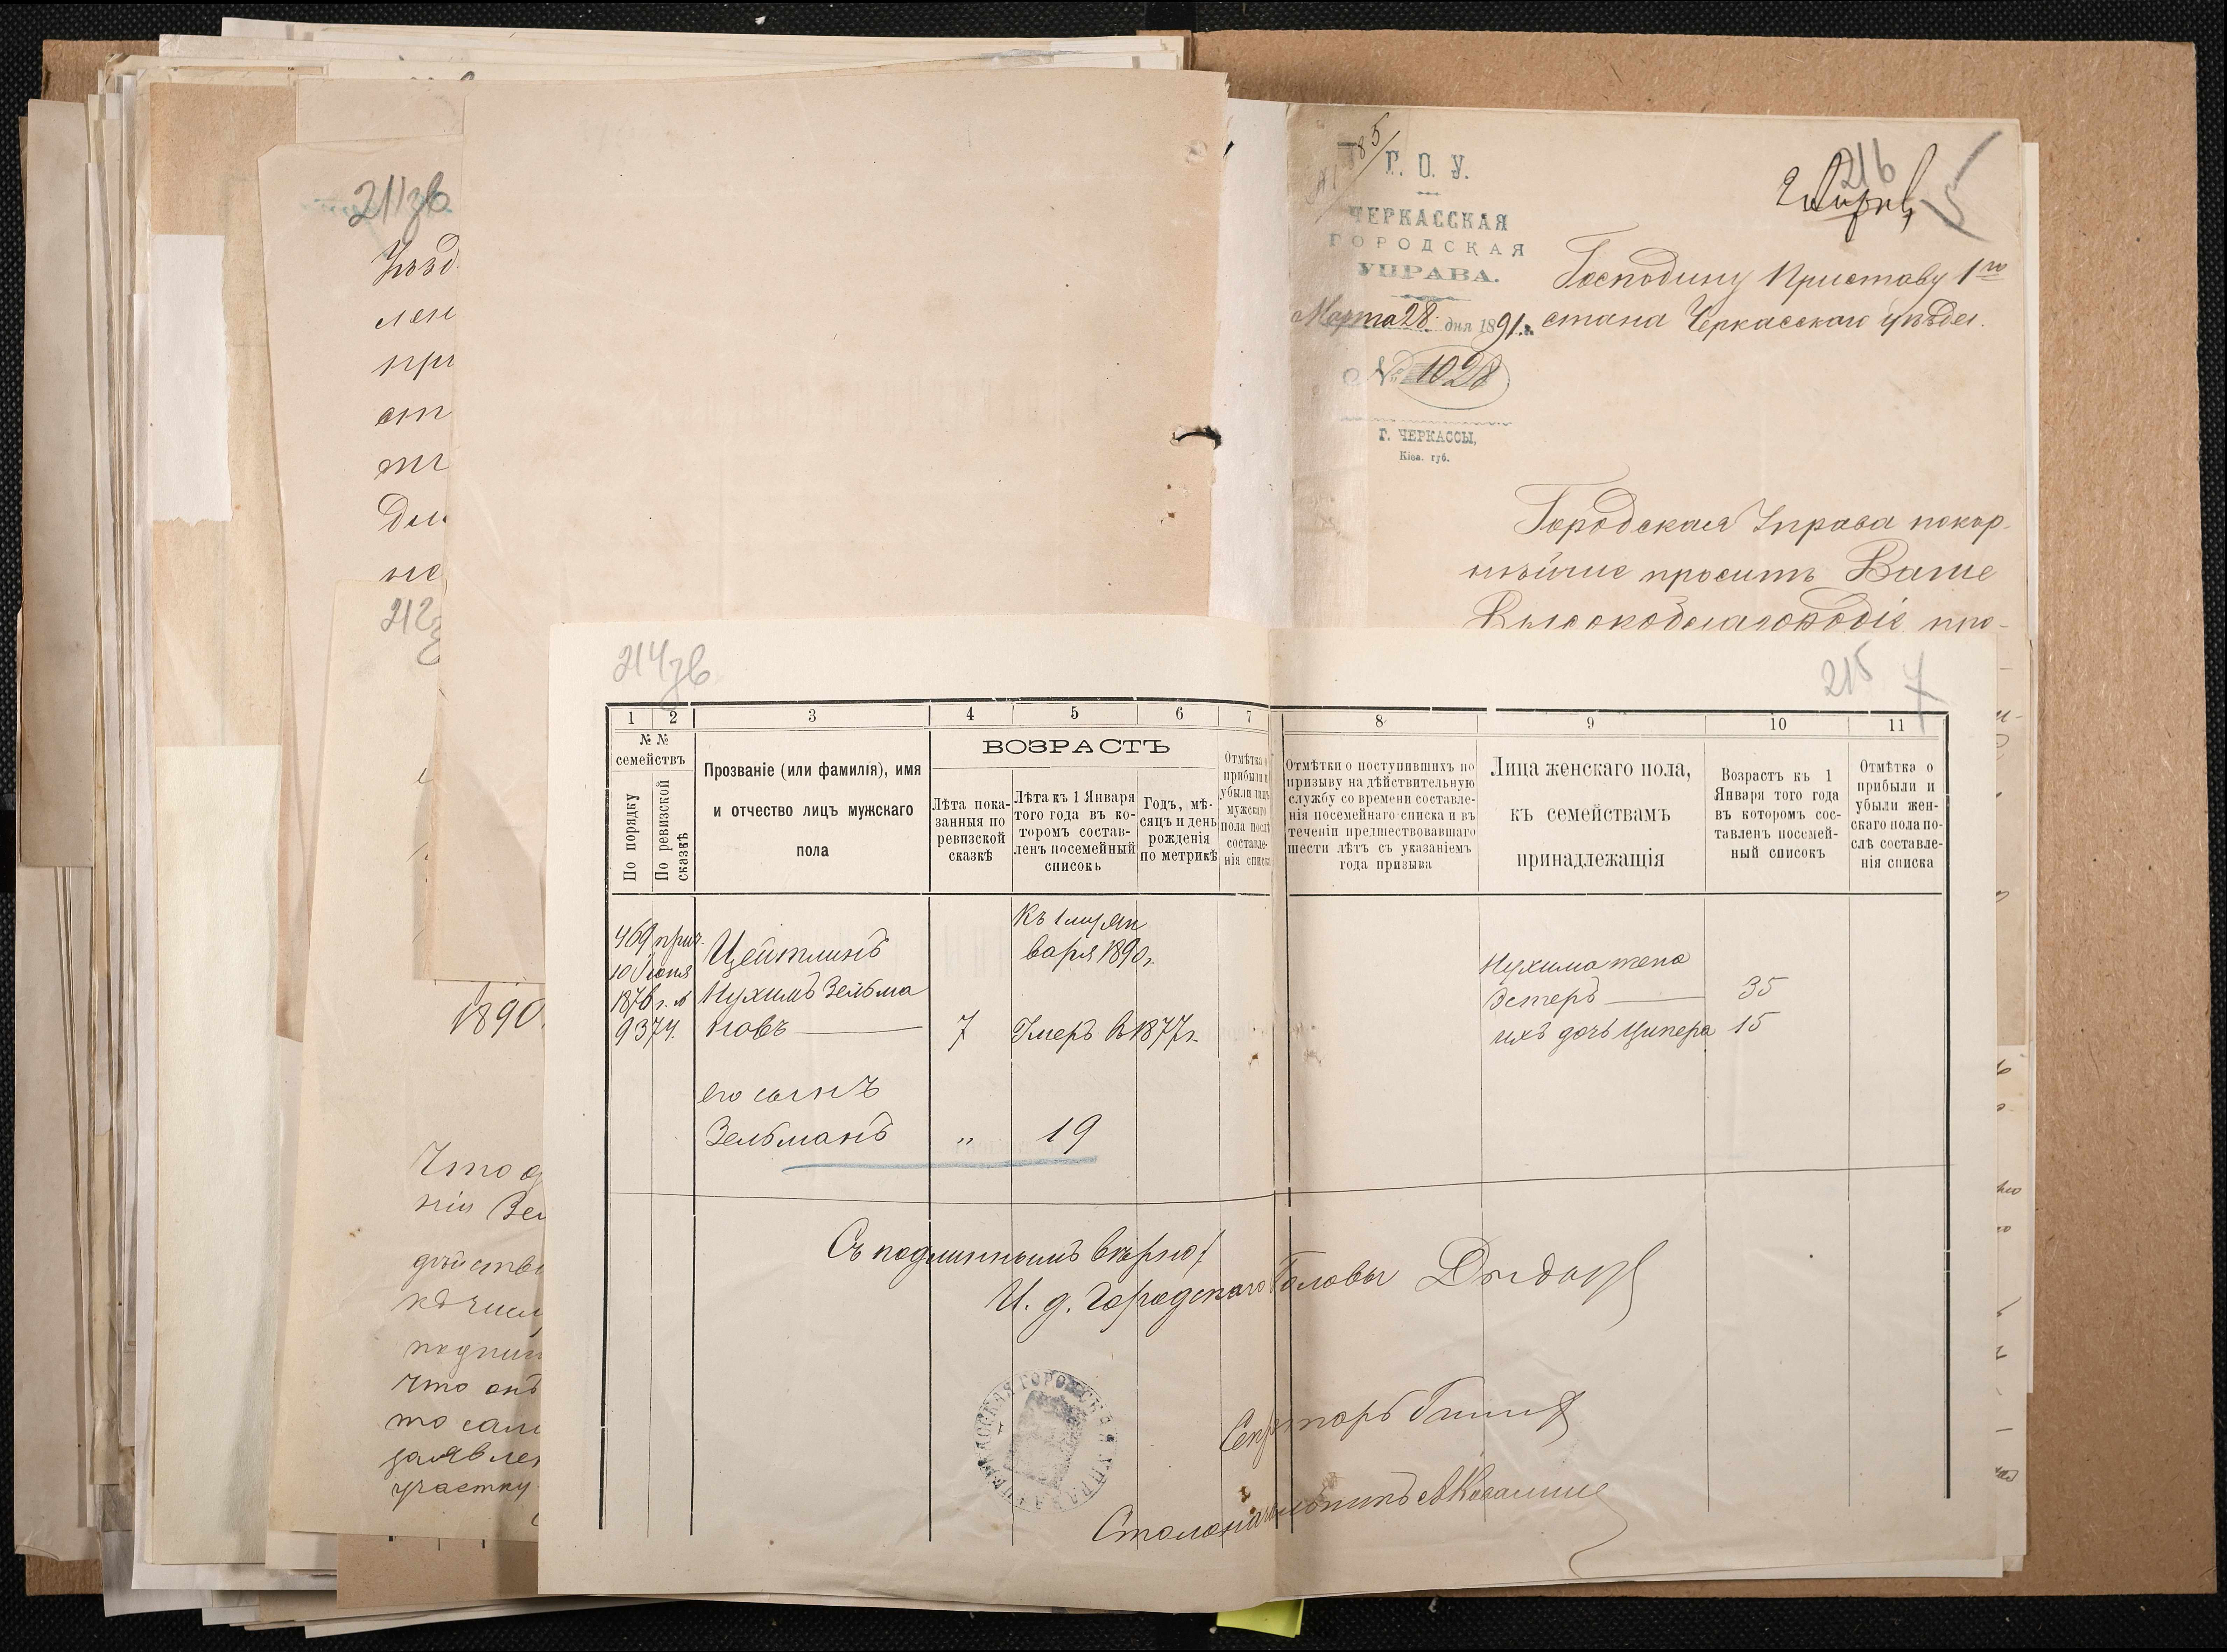 211зв
Уѣзд
лен
при
ст
не
212з
1890.
нія Зел
подпис
что онъ
то сам
заявлен
участку
Г. О. У.
ЧЕРКАССКАЯ
ГОРОДСКАЯ
УПРАВА.
Марта 28 дня 1891 г.
№ 1028
Г. ЧЕРКАССЫ,
Кіев. губ.
216
5
Господину Приставу 1го
стана Черкасскаго уѣзда.
Городская Управа покор-
нѣйше проситъ Ваше
Высокоблагородіе про-
214зв
215
7
1 2 3 4 5 6 7 8 9 10 11
№ №
семействъ
По порядку
По ревизской
сказкѣ
Прозваніе (или фамилія), имя
и отчество лицъ мужскаго
пола
ВОЗРАСТЪ
Лѣта пока-
занныя по
ревизской
сказкѣ
Лѣта къ 1 Января
того года въ ко-
торомъ состав-
ленъ посемейный
списокъ
Годъ, мѣ-
сяцъ и день
рожденія
по метрикѣ
Отмѣтка о
прибыли и
убыли лицъ
мужскаго
пола послѣ
составле-
нія списка
Отмѣтки о поступившихъ по
призыву на дѣйствительную
службу со времени составле-
нія посемейнаго списка и въ
теченіи предшествовавшаго
шести лѣтъ съ указаніемъ
года призыва
Лица женскаго пола,
къ семействамъ
принадлежащія
Возрастъ къ 1
Января того года
въ которомъ сос-
тавленъ посемей-
ный списокъ
Отмѣтка о
прибыли и
убыли жен-
скаго пола по-
слѣ составле-
нія списка
469 прич.
10 Іюня
1876 г. №
9374.
Цейтлинъ
Нухимъ Зельма
новъ
7
Къ 1му Ян
варя 1890 г.
Умеръ въ 1877 г.
его сынъ
Зельманъ „ 19
Нухима жена
Эстеръ 35
ихъ дочь Ципера 15
Съ подлиннымъ вѣрно:
И. д. Городскаго Головы
ЧЕРКАССКАЯ ГОРОДСКАЯ УПРАВА
Секретарь
Столоначальникъ